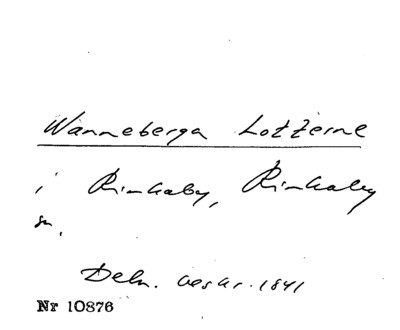 Wanneberga Lotterne
i Rinkaby, Rinkaby
sn.
Deln. beskr. 1841
Nr 10876